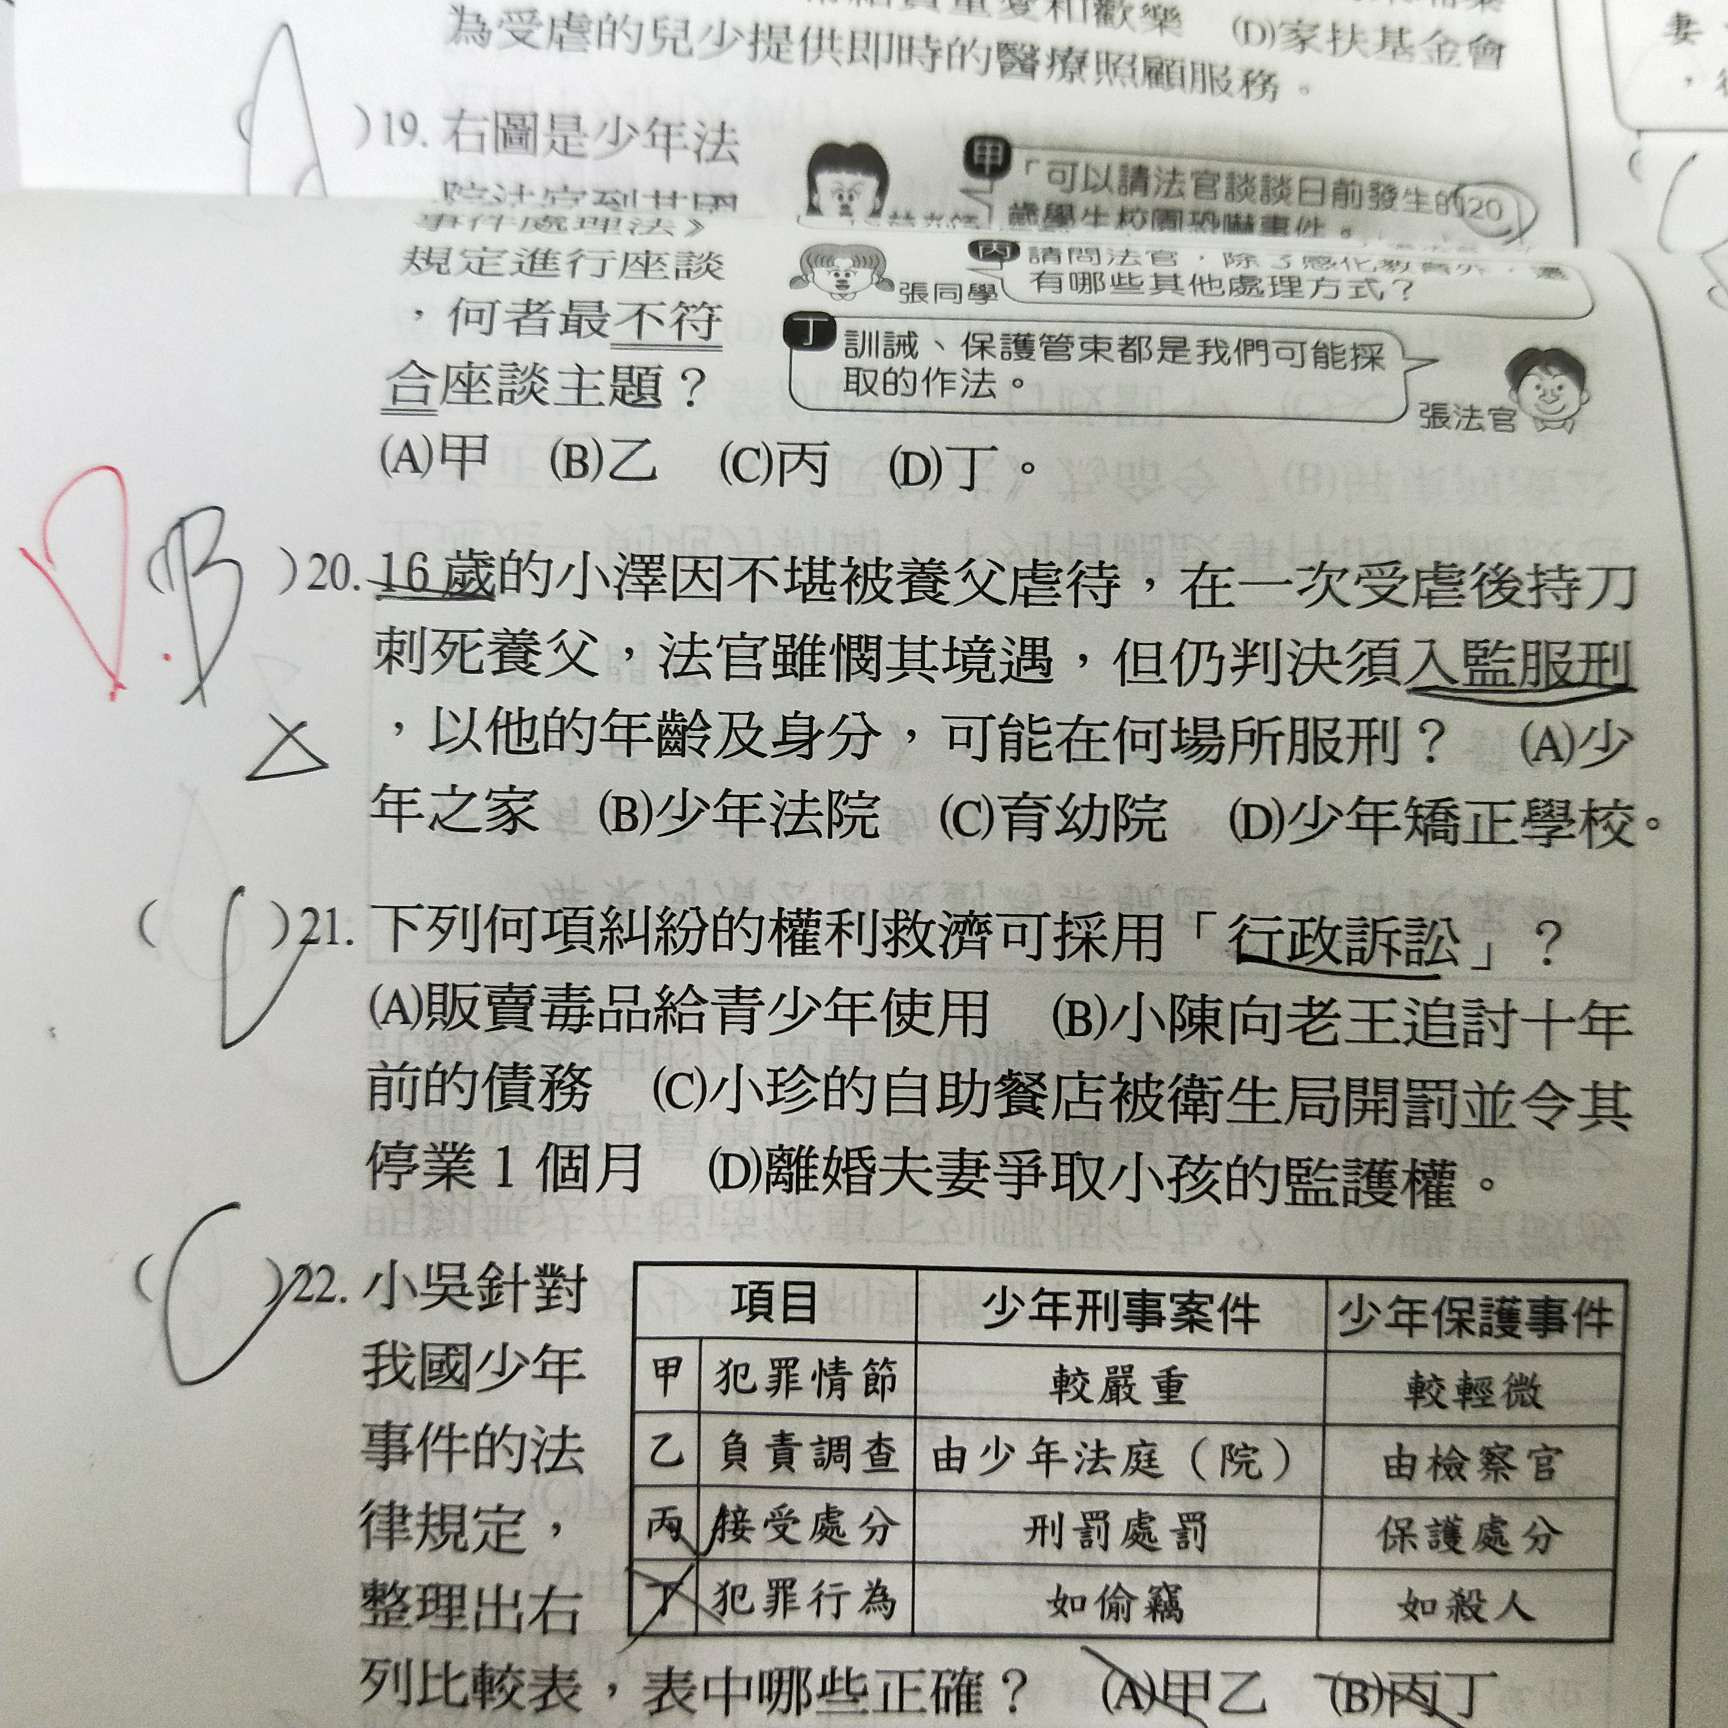 為受虐的兒少提供即時的醫療照顧服務。 (D)家扶基金會
( A )19. 右圖是少年法
甲
「可以請法官談談日前發生的20
歲學生校園恐嚇事件。
事件處理法》
規定進行座談
,何者最不符
合座談主題?
丙 請問法官,除了感化教育外,還
有哪些其他處理方式?
張同學
丁 訓誡、保護管束都是我們可能採
取的作法。
張法官
(A)甲 (B)乙 (C)丙 (D)丁。
D
( B )20. 16歲的小澤因不堪被養父虐待,在一次受虐後持刀
刺死養父,法官雖憫其境遇,但仍判決須入監服刑
,以他的年齡及身分,可能在何場所服刑? (A)少
年之家 (B)少年法院 (C)育幼院 (D)少年矯正學校。
( C )21. 下列何項糾紛的權利救濟可採用「行政訴訟」?
(A)販賣毒品給青少年使用 (B)小陳向老王追討十年
前的債務 (C)小珍的自助餐店被衛生局開罰並令其
停業1個月 (D)離婚夫妻爭取小孩的監護權。
( C )22. 小吳針對
我國少年
事件的法
律規定,
整理出右
項目 少年刑事案件 少年保護事件
甲 犯罪情節 較嚴重 較輕微
乙 負責調查 由少年法庭(院) 由檢察官
丙 接受處分 刑罰處罰 保護處分
丁 犯罪行為 如偷竊 如殺人
列比較表,表中哪些正確? (A)甲乙 (B)丙丁
妻